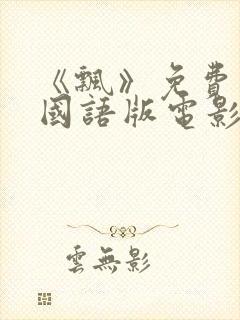 《飄》免費
國語版電影
雲無影